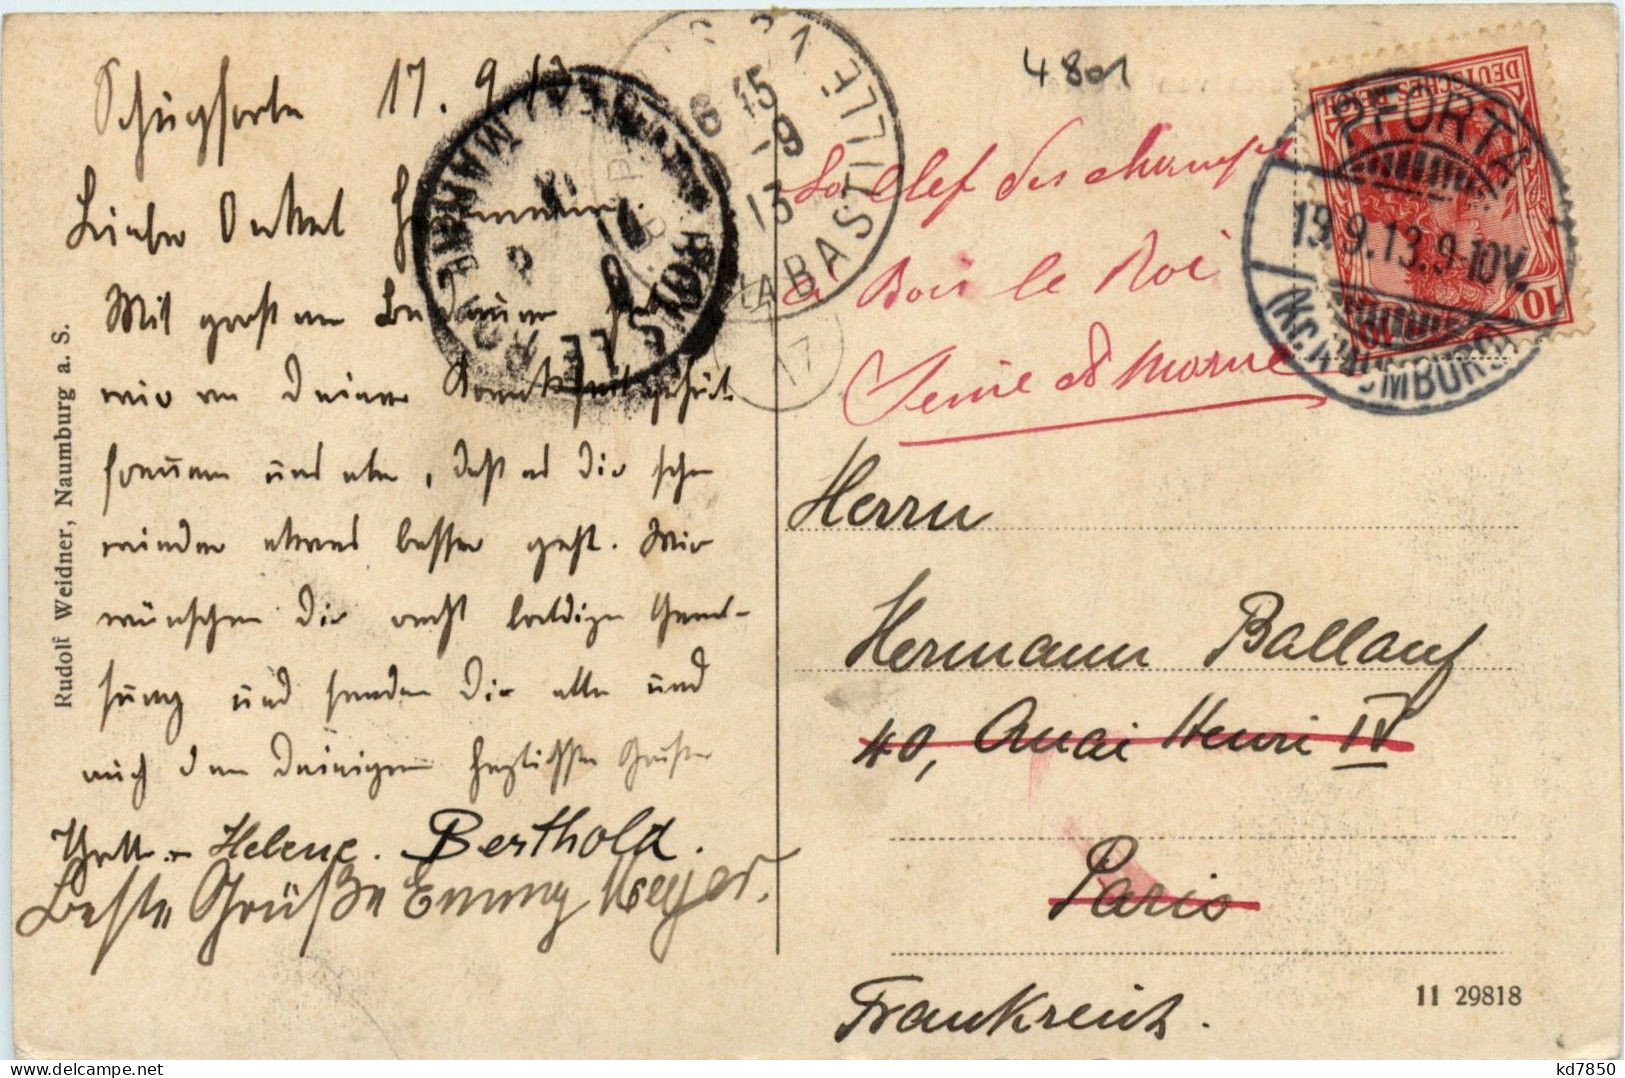 Schulpforta 17. 9. 13
Lieber Onkel Hermann.
Mit großem Bedauern haben
wir von Deiner Krankheit gehört
freuen uns aber, daß es Dir schon
wieder etwas besser geht. Wir
wünschen Dir recht baldige Gene-
sung und senden Dir alle und
auch den Deinigen herzlichste Grüße
Helene. Berthold.
Beste Grüße Emmy Meyer.
Rudolf Weidner, Naumburg a. S.
4801
PARIS
6 15
-9
13
LA BASTILLE
17
BOIS-LE-ROI
SEINE-ET-MARNE
La Clef des champs
à Bois le Roi
Seine et Marne
DEUTSCHES REICH
10 10
PFORTA
19.9.13.9-10V.
(KR. NAUMBURG)
Herrn
Hermann Ballauf
40, Quai Henri IV
Paris
Frankreich.
11 29818
kd7850